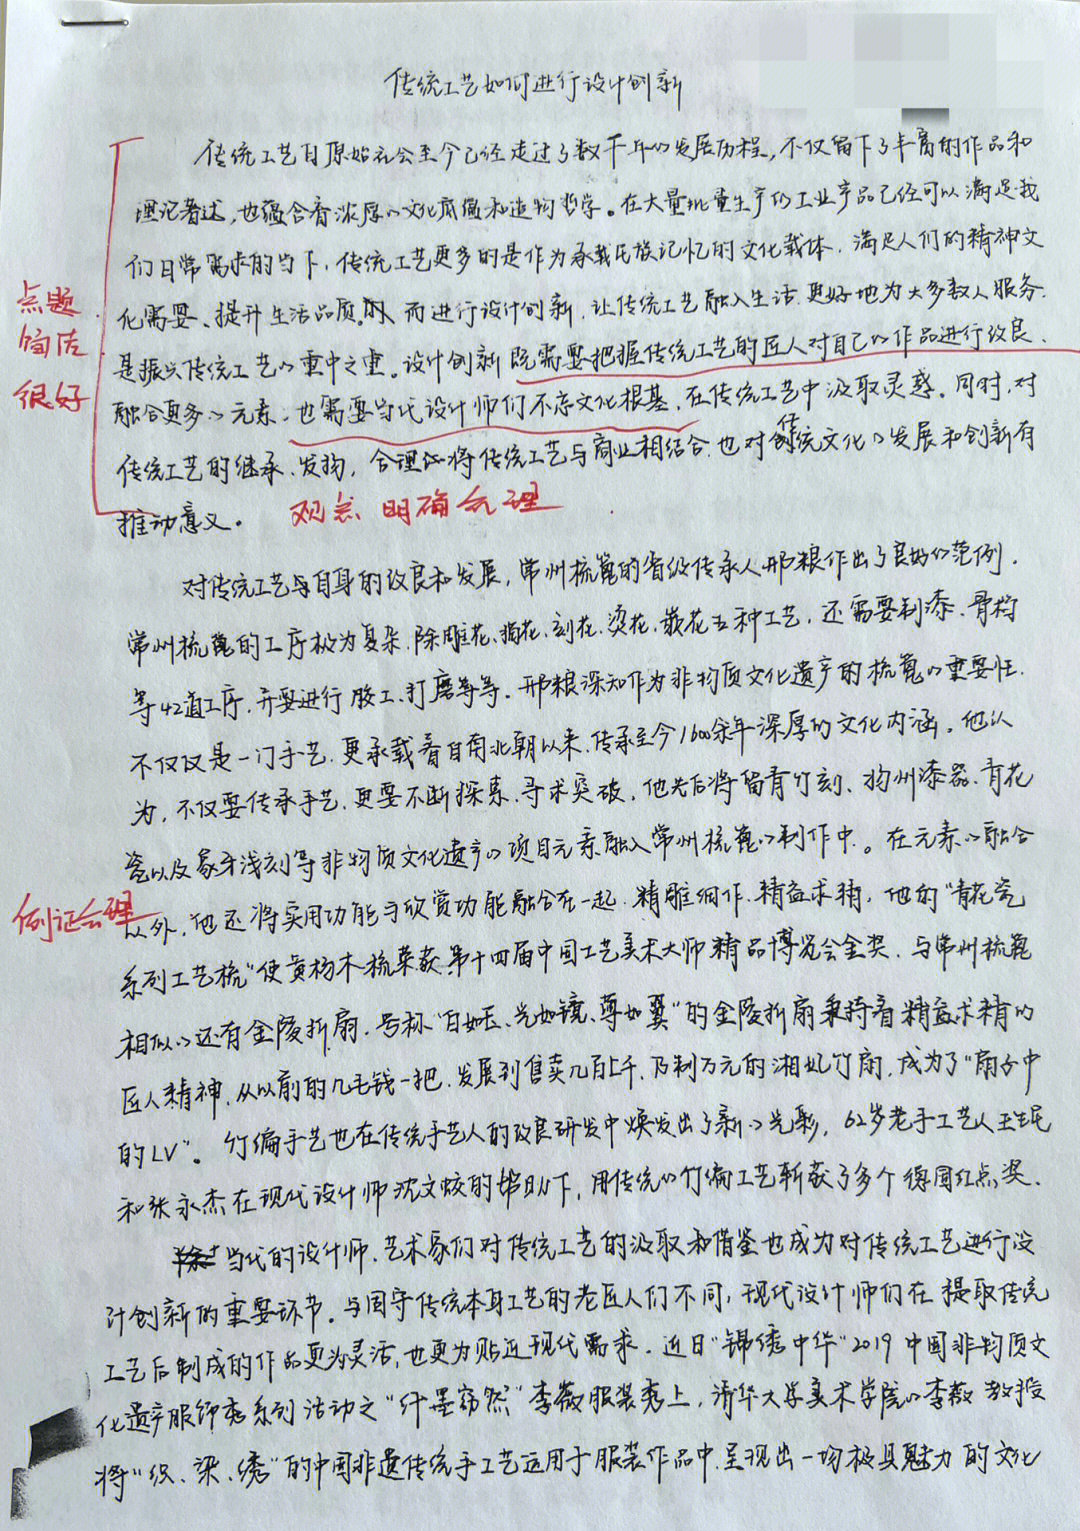 传统工艺如何进行设计创新
传统工艺自原始社会至今已经走过了数千年的发展历程,不仅留下了丰富的作品和
理记著述,也蕴含着浓厚的文化底蕴和造物哲学。在大量批量生产的工业产品已经可以满足我
们日常需求的当下,传统工艺更多的是作为承载民族记忆的文化载体,满足人们的精神文
点题
化需要、提升生活品质。而进行设计创新,让传统工艺融入生活,更好地为大多数人服务,
简洁
是振兴传统工艺的重中之重。设计创新既需要把握传统工艺的匠人对自己的作品进行改良,
很好
融合更多的元素,也需要当代设计师们不忘文化根基,在传统工艺中汲取灵感。同时,对
传统工艺的继承、发扬,合理地将传统工艺与商业相结合,也对传统文化的发展和创新有
推动意义。
观点明确合理
对传统工艺与自身的改良和发展,常州梳篦的省级传承人邢粮作出了良好的范例。
常州梳篦的工序极为复杂,除雕花、描花、刻花、烫花、嵌花五种工艺,还需要制漆、骨档
等42道工序,并要进行胶工、打磨等等。邢粮深知作为非物质文化遗产的梳篦的重要性,
不仅仅是一门手艺,更承载着自南北朝以来,传承至今1600余年深厚的文化内涵。他认
为,不仅要传承手艺,更要不断探索、寻求突破,他先后将留青竹刻、扬州漆器、青花
瓷以及象牙浅刻等非物质文化遗产的项目元素融入常州梳篦的制作中。在元素的融合
例证合理
以外,他还将实用功能与欣赏功能融合在一起,精雕细作,精益求精,他的“青花瓷
系列工艺梳”使黄杨木梳荣获第十四届中国工艺美术大师精品博览会金奖,与常州梳篦
相似的还有金陵折扇,号称“白如玉、光如镜、薄如翼”的金陵折扇秉持着精益求精的
匠人精神,从以前的几毛钱一把,发展到售卖几百上千,乃到万元的湘妃竹扇,成为了“扇子中
的LV”。竹编手艺也在传统手艺人的改良研发中焕发出了新的光彩,62岁老手工艺人王生民
和张永杰在现代设计师沈文蛟的帮助下,用传统的竹编工艺斩获了多个德国红点奖。
当代的设计师、艺术家们对传统工艺的汲取和借鉴也成为对传统工艺进行设
计创新的重要环节。与固守传统本身工艺的老匠人们不同,现代设计师们在提取传统
工艺后制成的作品更为灵活,也更为贴近现代需求。近日“锦绣中华”2019中国非物质文
化遗产服饰秀系列活动之“纤墨窈然”李薇服装秀上,清华大学美术学院的李薇教授
将“织、染、绣”的中国非遗传统手工艺运用于服装作品中,呈现出一场极具魅力的文化